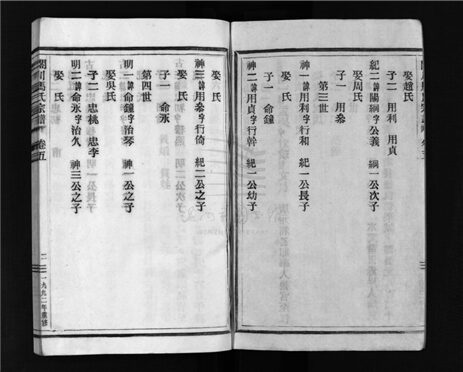 娶趙氏
子二 用利 用貞
紀二諱關綱字公義 綱一公次子
娶周氏
子一 用叅
第三世
神一諱用利字行和 紀一公長子
娶 氏
子一 命鐘
神二諱用貞字行幹 紀一公幼子
娶 氏
神三諱用叅字行倚 紀二公之子
娶 氏
子一 命永
第四世
明一諱命鐘字治琴 神一公之子
娶吳氏
子二 忠桃 忠李
明二諱命永字治久 神三公之子
娶 氏
氏宗譜 卷五
二 一九九二年重修